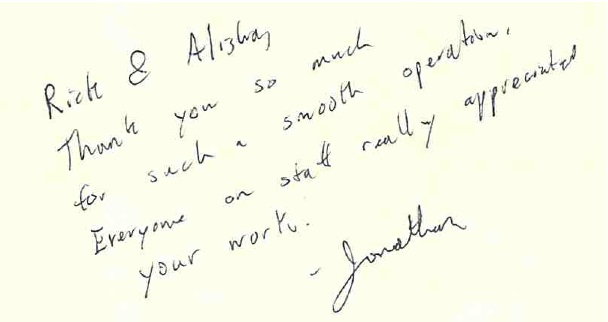 Rick & Alisha,
Thank you so much
for such a smooth operation.
Everyone on staff really appreciated
your work.
- Jonathan